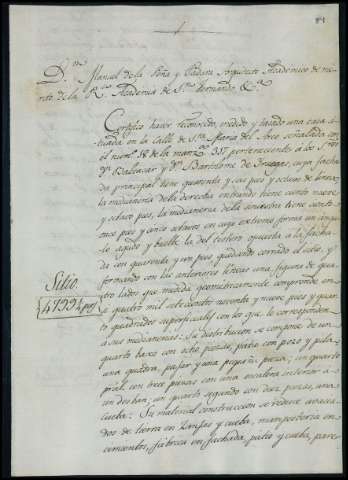 81
D.n Manuel de la Peña y Padura Arquitecto Académico de mé-
rito de la R.l Academia de S.n Fernando, &.a
Certifico haver reconocido, medido y tasado una casa si-
tuada en la calle de S.ta Maria del Arco señalada con
el num.o 18 de la manz.a 315 perteneciente a los S.res
D.n Baltasar y D.n Bartolome de
principal tiene quarenta y un pies y octavo de linea,
la medianeria de la derecha entrando tiene ciento nueve
y octavo pies, la medianeria de la izquierda tiene ciento
once pies y cinco octavos en cuyo extremo forma un angulo
la del testero opuesta a la facha-
da con quarenta y un pies quadando cerrado el sitio, y
formando con las anteriores lineas una figura de qua-
tro lados que medida geometricamente comprende en
Sitio
4[?]
quatro mil
quadrados superficiales con lo que le corresponde
a sus medianerias: Su distribucion se compone de un
quarto baxo con ocho piezas, patio con pozo y pila,
una quadra, pajar y una pequeña pieza; un quarto
pral. con trece piezas con una escalera interior a
un desban; un quarto segundo con diez piezas, una
cueba: Su material construccion se reduce a vacia-
dos de tierra en zanjas y cueba, mamposteria en
cimientos, fabrica en fachada, patio y cueba, pare-